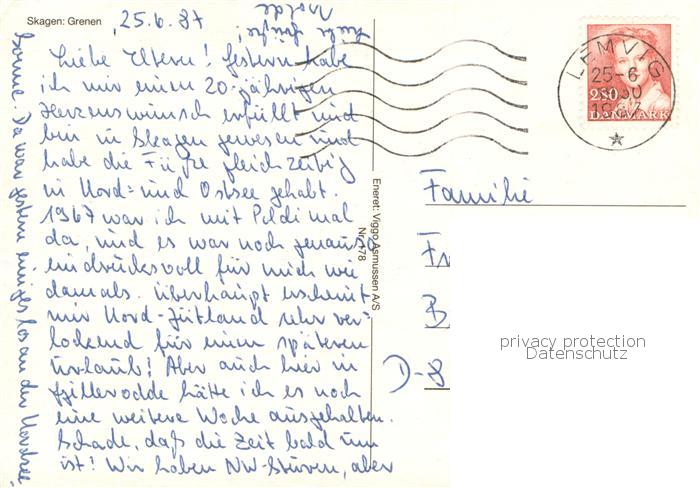 Skagen: Grenen
25.6.87
Liebe Eltern! Gestern habe
ich mir einen 20-jährigen
Herzenswunsch erfüllt und
bin in Skagen gewesen und
habe die Füße gleichzeitig
in Nord- und Ostsee gehabt.
1967 war ich mit Poldi mal
da, und es war noch genauso
eindrucksvoll für mich wie
damals. Überhaupt erscheint
mir Nord-Jütland sehr ver-
lockend für einen späteren
Urlaub! Aber auch hier in
hätte ich es noch
eine weitere Woche ausgehalten.
Schade, daß die Zeit bald um
ist! Wir haben NW-Sturm, aber
Sonne. Da war gestern einiges los an der Nordsee,
Liebe Grüße!
Isolde
Eneret: Viggo Asmussen A/S
Nr. 178
LEMVIG
25-6
280
DANMARK
Familie
Fr
B
D-8
privacy protection
Datenschutz